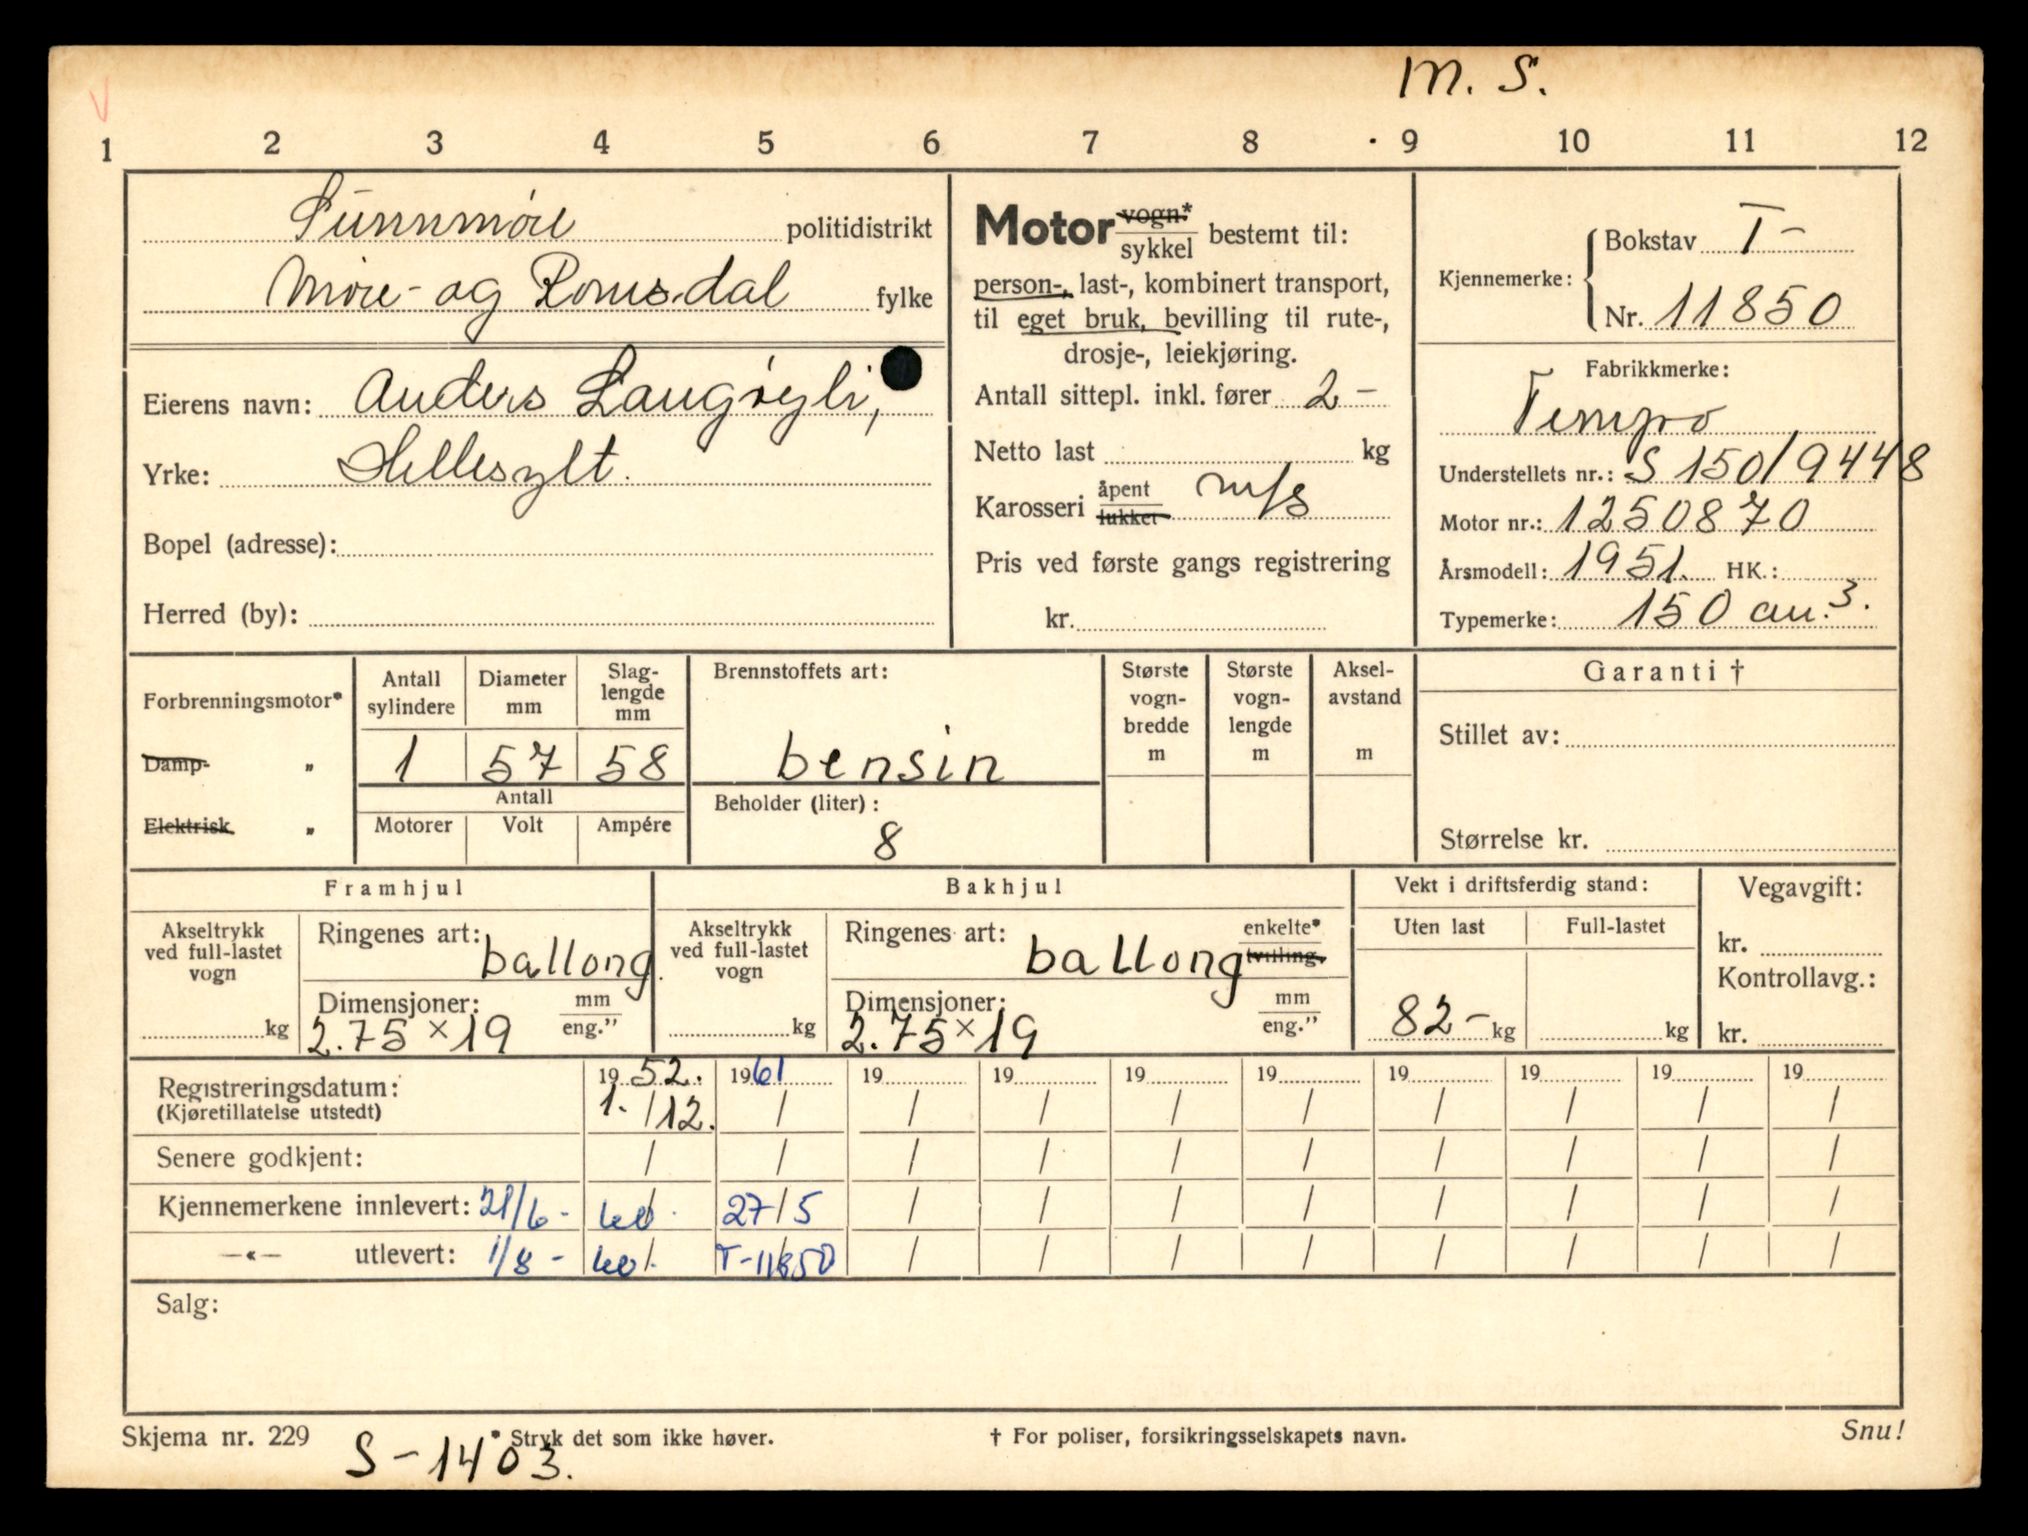 M. S.
1 2 3 4 5 6 7 8 9 10 11 12
Sunnmøre politidistrikt
Møre- og Romsdal fylke
Eierens navn: Anders
Yrke: Hellesylt.
Bopel (adresse):
Herred (by):
Motor vogn* / sykkel bestemt til:
person-, last-, kombinert transport,
til eget bruk, bevilling til rute-,
drosje-, leiekjøring.
Antall sittepl. inkl. fører 2 -
Netto last kg
Karosseri åpent / lukket m/s
Pris ved første gangs registrering
kr.
Kjennemerke: Bokstav T-
Nr. 11850
Fabrikkmerke:
Tempo
Understellets nr.: S 150/9448
Motor nr.: 1250870
Årsmodell: 1951. HK.:
Typemerke: 150 cm.3.
Forbrenningsmotor*
Damp- "
Elektrisk "
Antall sylindere
1
Diameter mm
57
Slag-
lengde
mm
58
Antall
Motorer Volt Ampére
Brennstoffets art:
bensin
Beholder (liter):
8
Største
vogn-
bredde
m
Største
vogn-
lengde
m
Aksel-
avstand
m
Garanti †
Stillet av:
Størrelse kr.
Framhjul
Akseltrykk
ved full-lastet
vogn
kg
Ringenes art: ballong
Dimensjoner: mm
2.75 × 19 eng."
Bakhjul
Akseltrykk
ved full-lastet
vogn
kg
Ringenes art: ballong enkelte* / tvilling.
Dimensjoner: mm
2.75 × 19 eng."
Vekt i driftsferdig stand:
Uten last Full-lastet
82- kg kg
Vegavgift:
kr.
Kontrollavg.:
kr.
Registreringsdatum: 1952. 1961 19 19 19 19 19 19 19 19
(Kjøretillatelse utstedt) 1. / 12. / / / / / / / / /
Senere godkjent: / / / / / / / / / /
Kjennemerkene innlevert: 21/6- 60. 27/5 / / / / / / / /
—«— utlevert: 1/8 - 60. T-11850 / / / / / / / /
Salg:
Skjema nr. 229 * Stryk det som ikke høver. † For poliser, forsikringsselskapets navn. Snu!
S-1403.